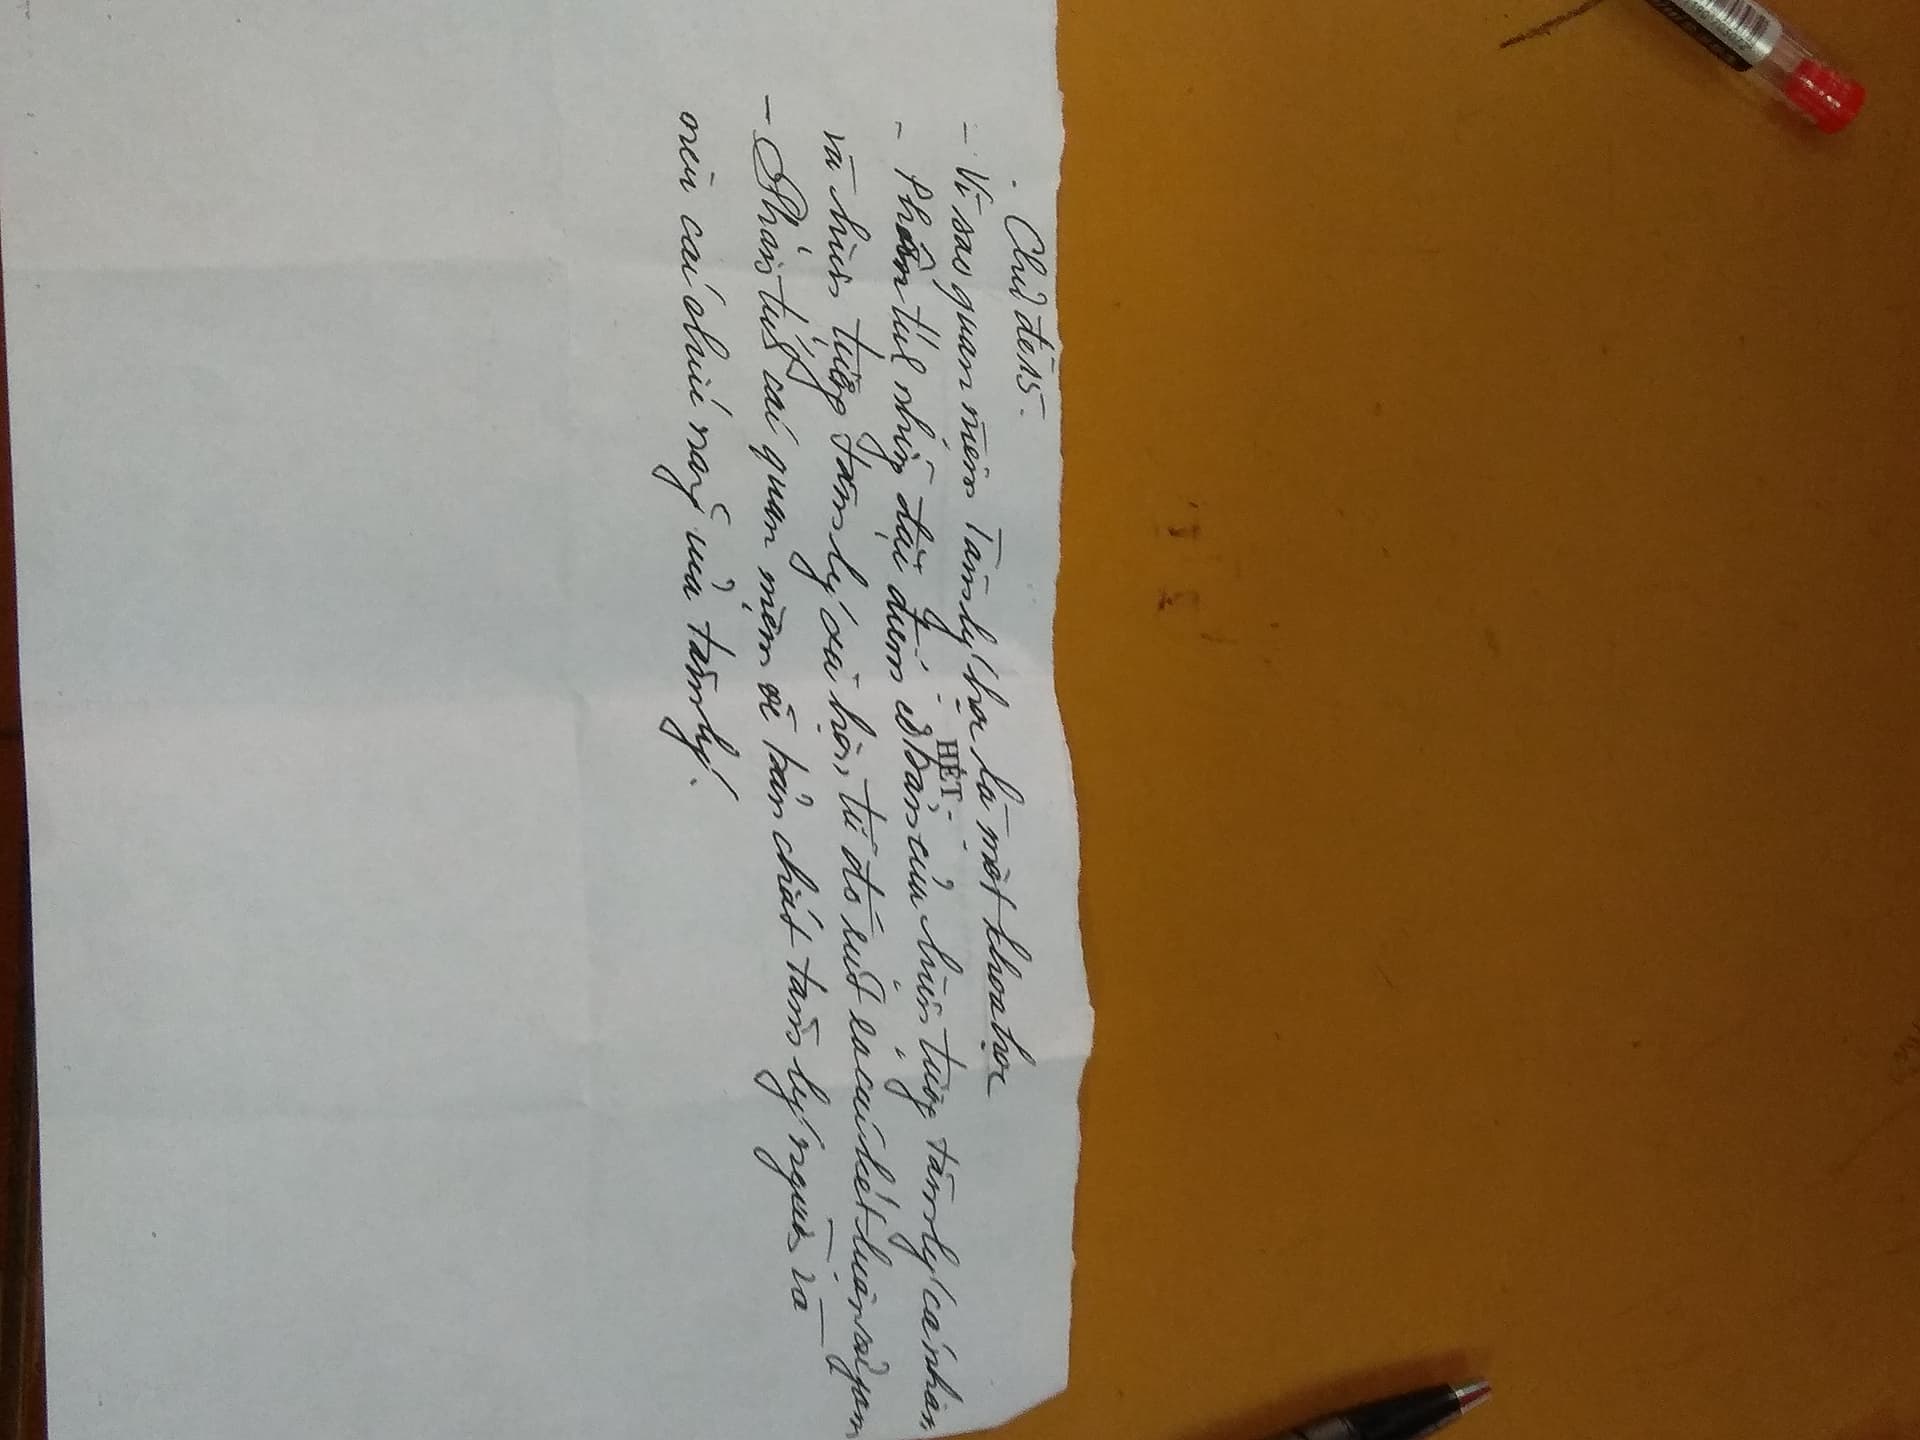 . Chủ đề 15.
- Vì sao quan niệm Tâm lý học là một khoa học
- HẾT -
- Phân tích những đặc điểm cơ bản của hiện tượng tâm lý cá nhân
và hiện tượng tâm lý xã hội, từ đó rút ra các kết luận sư phạm
- Phân tích các quan niệm về bản chất tâm lý người và
nêu các chức năng của tâm lý.